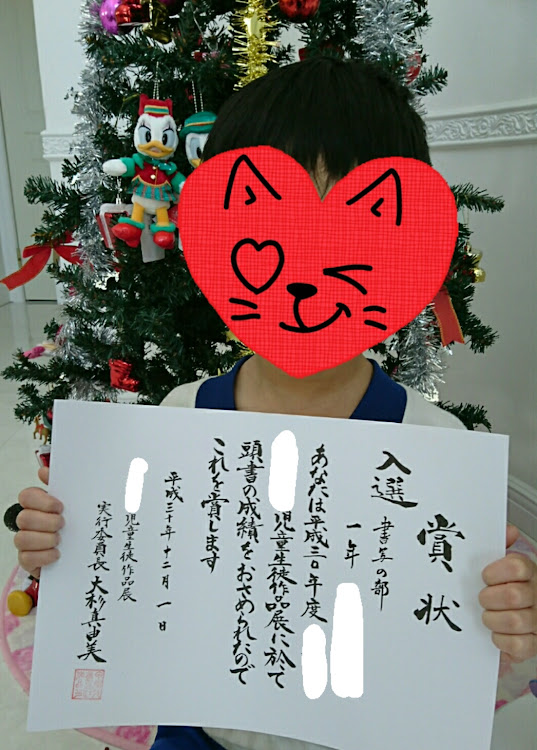 賞状
入選
書写の部
一年
あなたは平成三〇年度
児童生徒作品展に於て
頭書の成績をおさめられたので
これを賞します
平成三十年十二月一日
児童生徒作品展
実行委員長 大杉真由美